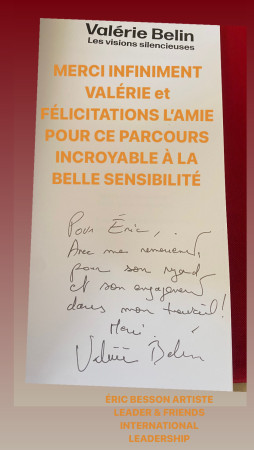 Valérie Belin
Les visions silencieuses
MERCI INFINIMENT
VALÉRIE et
FÉLICITATIONS L'AMIE
POUR CE PARCOURS
INCROYABLE À LA
BELLE SENSIBILITÉ
Pour Éric,
Avec mes remerciements,
pour son regard
et son engagement
dans mon travail!
Merci
Valérie Belin
ÉRIC BESSON ARTISTE
LEADER & FRIENDS
INTERNATIONAL
LEADERSHIP